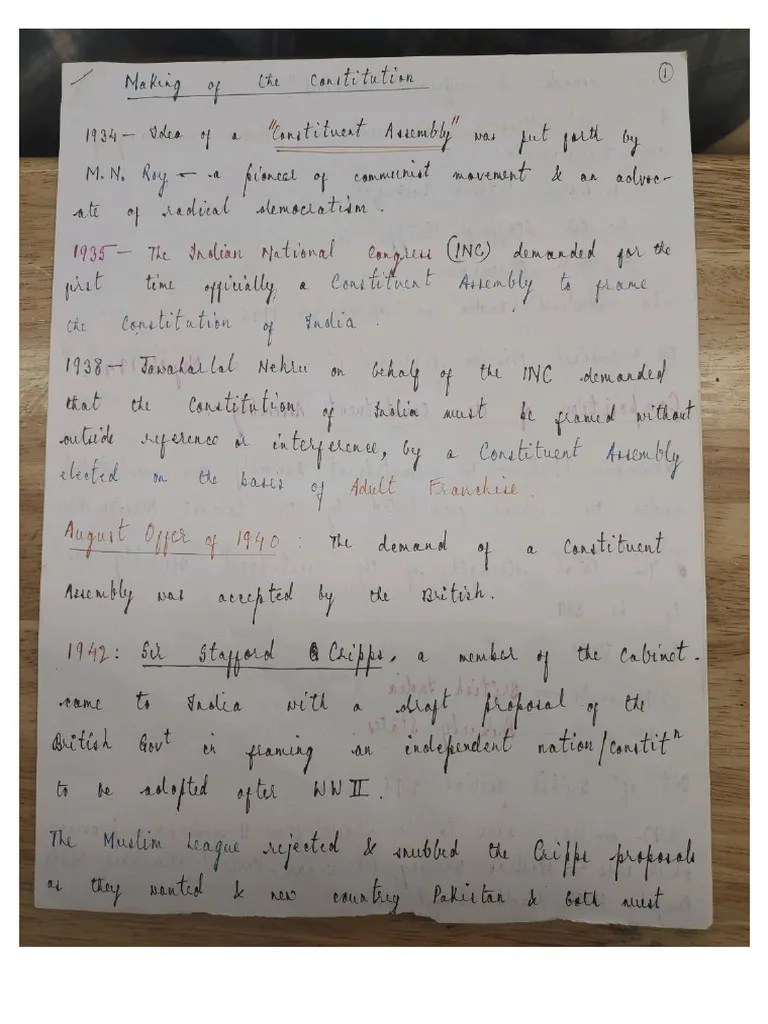 Making of the Constitution
1
1934 – Idea of a "Constituent Assembly" was put forth by
M.N. Roy – a pioneer of communist movement & an advoc-
ate of radical democratism.
1935 – The Indian National Congress (INC) demanded for the
first time officially, a Constituent Assembly to frame
the Constitution of India.
1938 – Jawaharlal Nehru on behalf of the INC demanded
that the Constitution of India must be framed without
outside reference or interference, by a Constituent Assembly
elected on the basis of Adult Franchise.
August Offer of 1940 : The demand of a Constituent
Assembly was accepted by the British.
1942: Sir Stafford Cripps, a member of the Cabinet.
came to India with a draft proposal of the
British Govt in framing an independent nation/constitn
to be adopted after WW II.
The Muslim League rejected & snubbed the Cripps proposals
as they wanted & new country Pakistan & both must